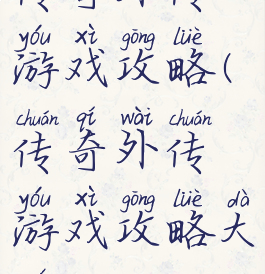 yóu xì gōng lüè
游戏攻略(
chuán qí wài chuán
传奇外传
yóu xì gōng lüè dà
游戏攻略大